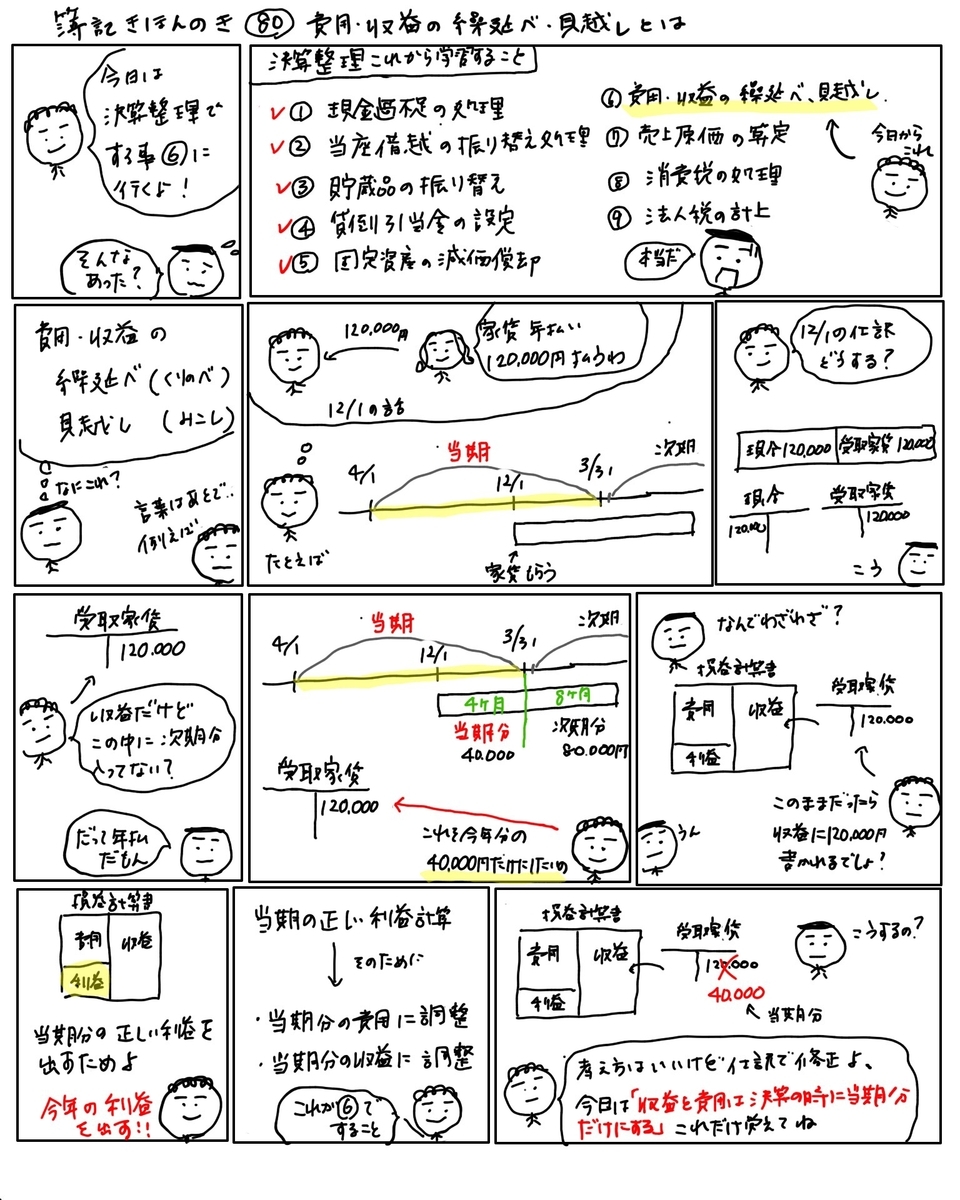 簿記きほんのき 80 費用・収益の繰延べ・見越しとは
今日は
決算整理で
する事⑥に
行くよ!
そんな
あった?
決算整理これから学習すること
✓① 現金過不足の処理
✓② 当座借越の振り替え処理
✓③ 貯蔵品の振り替え
✓④ 貸倒引当金の設定
✓⑤ 固定資産の減価償却
⑥ 費用・収益の繰延べ、見越し
⑦ 売上原価の算定
⑧ 消費税の処理
⑨ 法人税の計上
今日から
これ
本当だ
費用・収益の
繰延べ(くりのべ)
見越し (みこし)
なにこれ?
言葉はあとで..
例えば
120,000円
家賃 年払い
120,000円払うわ
12/1の話
当期
次期
4/1
12/1
3/31
たとえば
家賃もらう
12/1の仕訳
どうする?
現金120,000 受取家賃120,000
現金
120.000
受取家賃
120.000
こう
受取家賃
120.000
収益だけど
この中に次期分
入ってない?
だって年払
だもん
当期
次期
4/1
12/1
3/31
4ヶ月
8ヶ月
当期分
40.000
次期分
80.000円
受取家賃
120,000
これを今年分の
40,000円だけにしたいの
なんでわざわざ?
損益計算書
費用
収益
利益
受取家賃
120.000
このままだったら
収益に120,000円
書かれるでしょ?
うん
損益計算書
費用
収益
利益
当期分の正しい利益を
出すためよ
今年の利益
を出す!!
当期の正しい利益計算
そのために
・当期分の費用に調整
・当期分の収益に調整
これが⑥で
すること
損益計算書
費用
収益
利益
受取家賃
120.000
40.000
当期分
こうするの?
考え方はいいけど仕訳で修正よ、
今日は「収益と費用は決算の時に当期分
だけにする」これだけ覚えてね